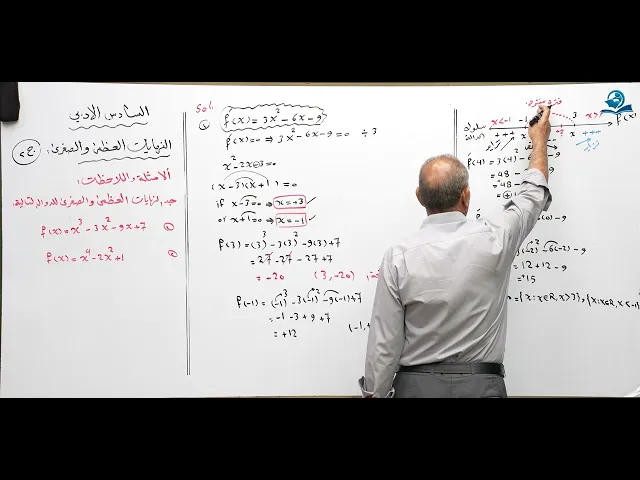 السادس الأدبي
النهايات العظمى والصغرى: ج2
الأمثلة والملاحظات:
جد النهايات العظمى والصغرى للدوال التالية:
① f(x) = x³ - 3x² - 9x + 7
② f(x) = x⁴ - 2x² + 1
Sol.
① f(x) = 3x² - 6x - 9
f(x) = 0 ⇒ 3x² - 6x - 9 = 0 ÷ 3
x² - 2x - 3 = 0
(x - 3)(x + 1) = 0
if x - 3 = 0 ⇒ x = +3 ✓
or x + 1 = 0 ⇒ x = -1 ✓
f(3) = (3)³ - 3(3)² - 9(3) + 7
= 27 - 27 - 27 + 7
= -20 (3, -20)
f(-1) = (-1)³ - 3(-1)² - 9(-1) + 7
= -1 - 3 + 9 + 7
= +12
x < -1 -1 3 x > 3 f(x)
+++ x x +++
f(4) = 3(4)²
= 48
= 48
(0) - 9
(-2)² - 6(-2) - 9
= 12 + 12 - 9
= +15
= {x: x∈R, x > 3}, {x: x∈R, x < -1}